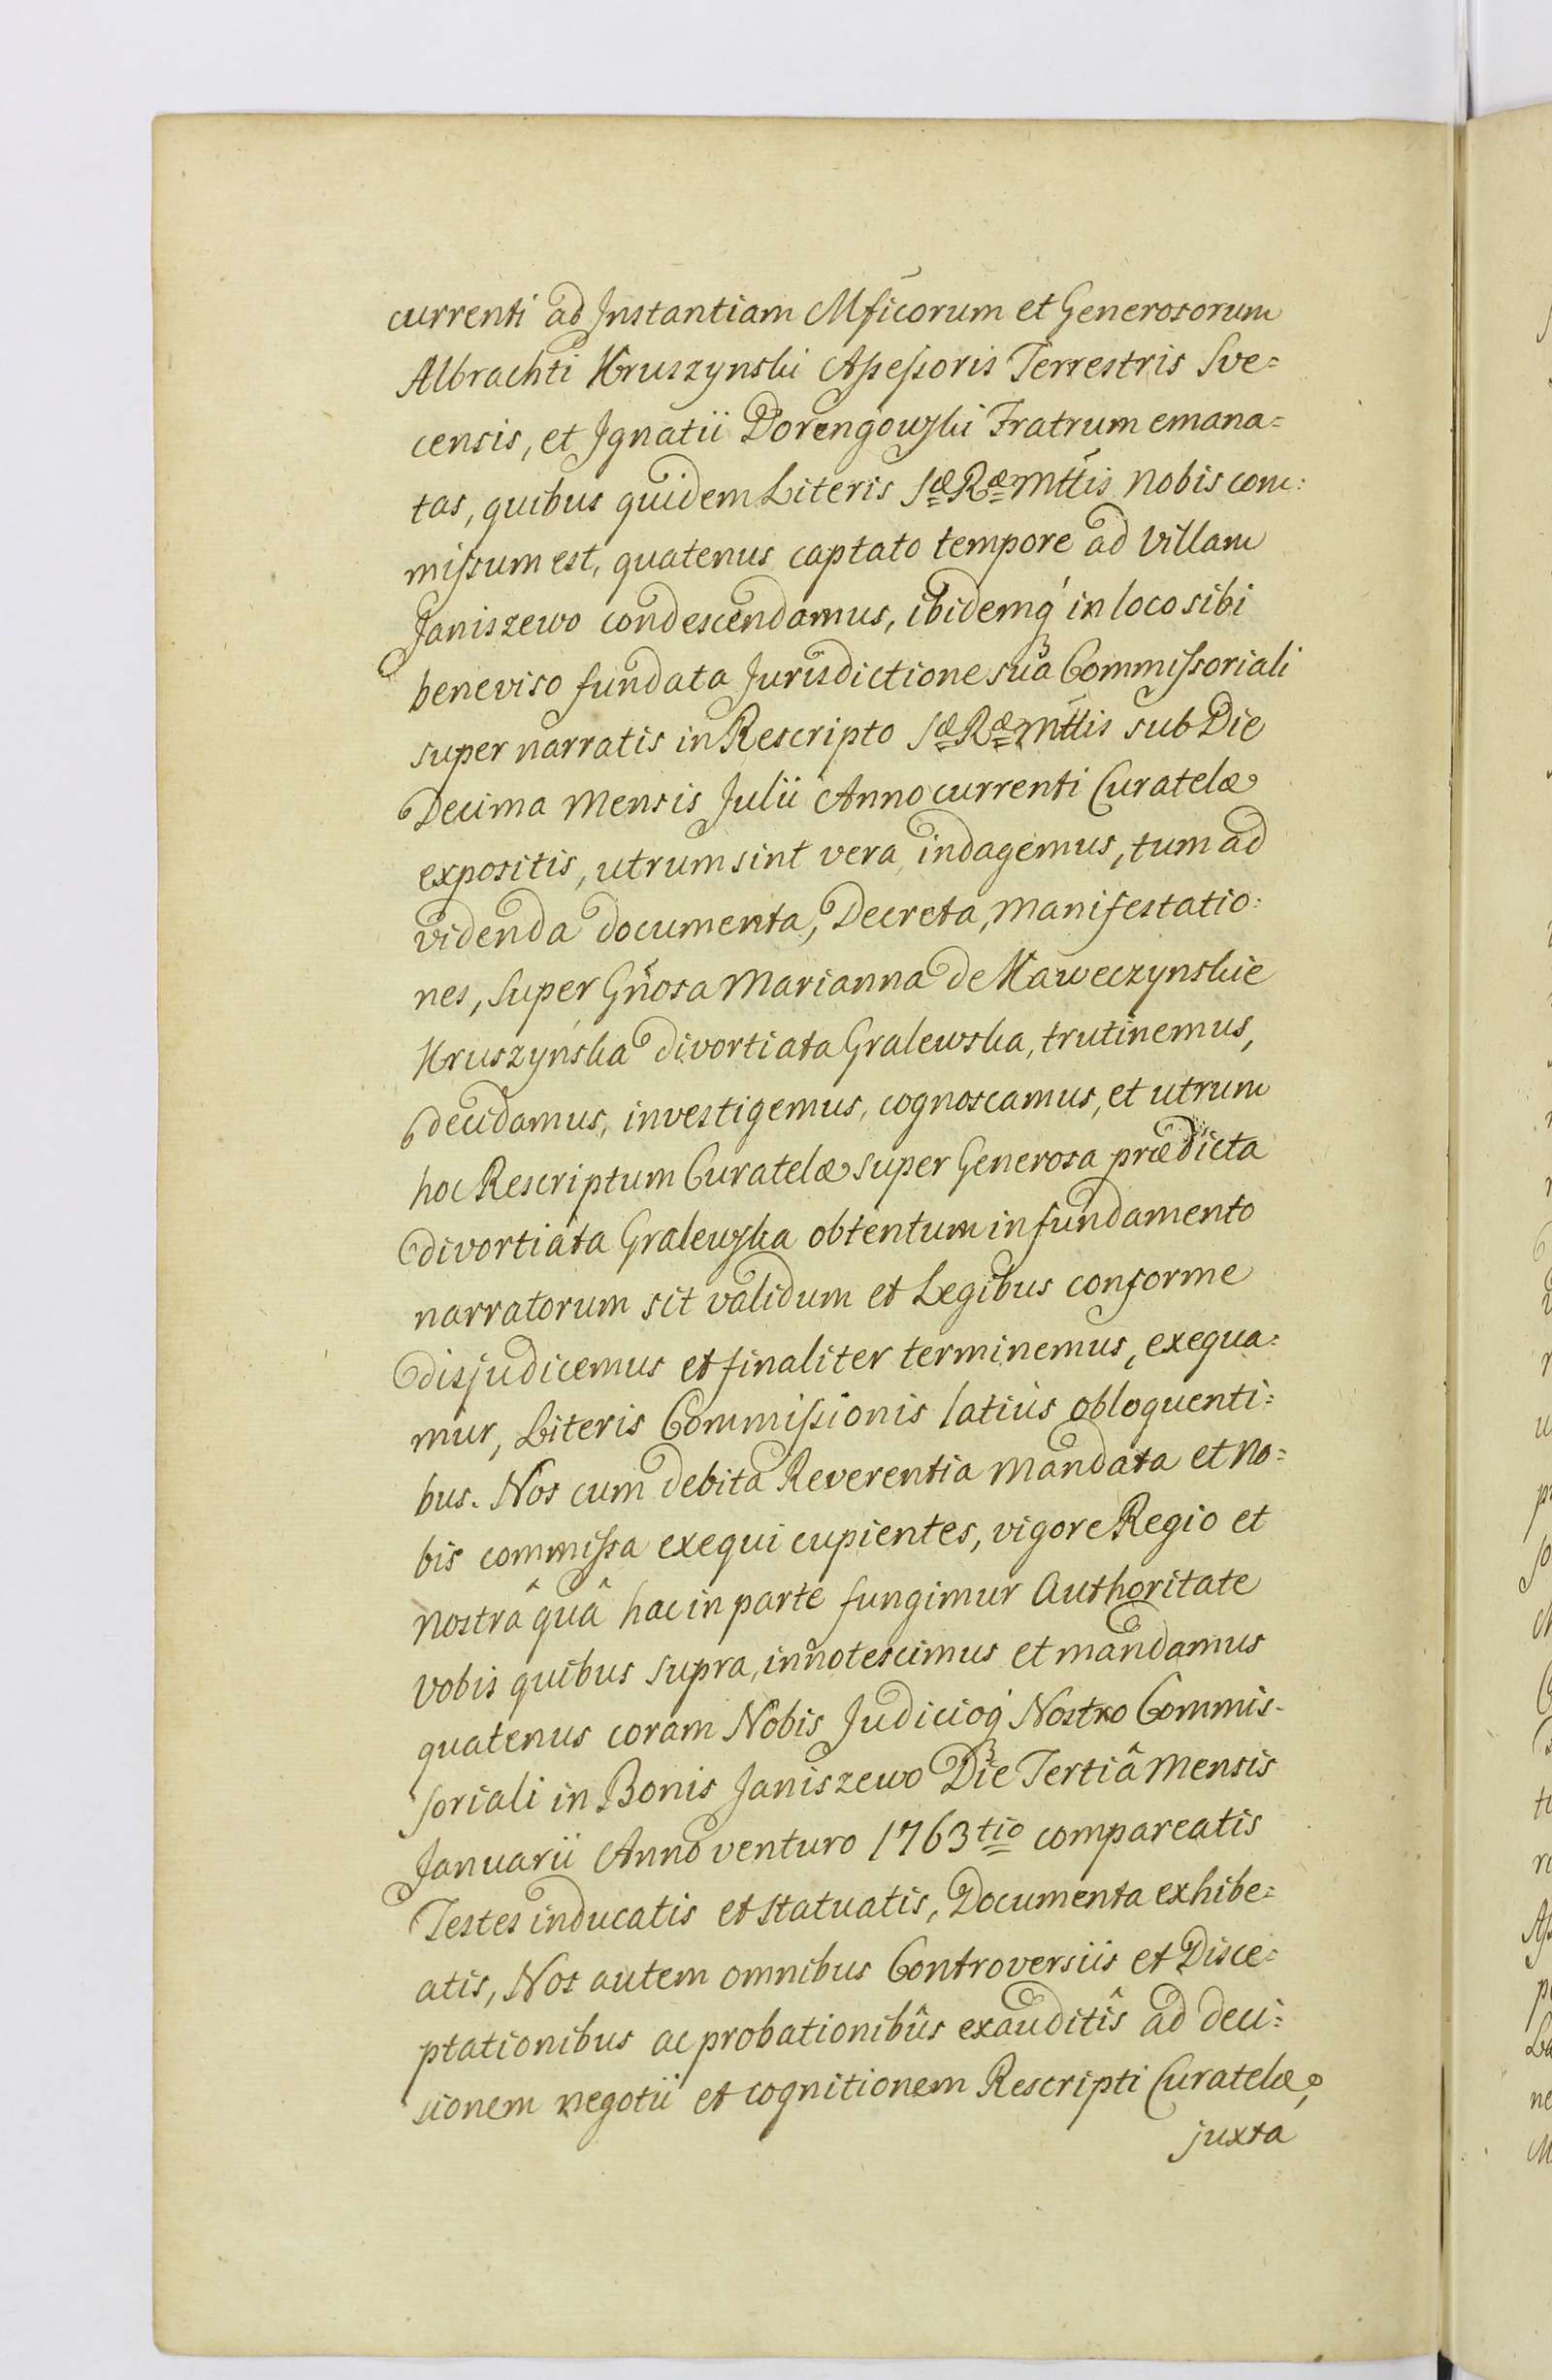 currenti ad Instantiam Mficorum et Generosorum
Albrachti Kruszynski Assessoris Terrestris Sve=
censis, et Ignatii Dorengowski Fratrum emana=
tas, quibus quidem Literis Sæ Ræ Mttis nobis com:
missum est, quatenus captato tempore ad Villam
Janiszewo condescendamus, ibidemq́ in loco sibi
beneviso fundata Jurisdictione sua Commissoriali
super narratis in Rescripto Sæ Ræ Mttis sub Die
Decima Mensis Julii Anno currenti Curatelæ
expositis, utrum sint vera indagemus, tum ad
videnda documenta, Decreta, Manifestatio:
nes, super Gnosa Marianna de Kaweczynskie
Kruszyńska divortiata Gralewska, trutinemus,
decidamus, investigemus, cognoscamus, et utrum
hoc Rescriptum Curatelæ super Generosa prædicta
divortiata Gralewska obtentum in fundamento
narratorum sit validum et Legibus conforme
disjudicemus et finaliter terminemus, exequa=
mur, Literis Commissionis latius obloquenti=
bus. Nos cum debita Reverentia Mandata et no=
bis commissa exequi cupientes, vigore Regio et
nostrâ quâ hac in parte fungimur Authoritate
vobis quibus supra, innotescimus et mandamus
quatenus coram Nobis Judicioq́ Nostro Commis-
soriali in Bonis Janiszewo Die Tertiâ Mensis
Januarii Anno venturo 1763tio compareatis
Testes inducatis et statuatis, Documenta exhibe=
atis, Nos autem omnibus Controversiis et Disce=
ptationibus ac probationibûs exauditîs ad deci=
sionem negotii et cognitionem Rescripti Curatelæ,
juxta